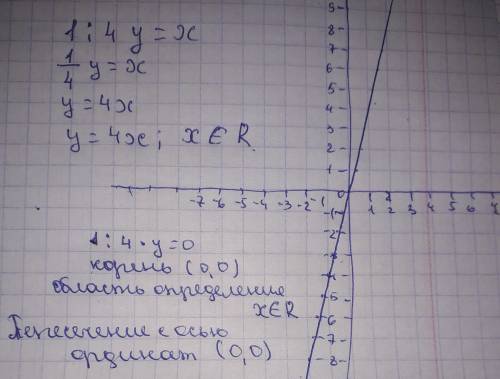 1 : 4 y = x
1/4 y = x
y = 4x
y = 4x ; x ∈ R.
9
8
7
6
5
4
3
2
1
0
-7 -6 -5 -4 -3 -2 -1
1 2 3 4 5 6 7
-1
-2
-3
-4
-5
-6
-7
-8
1 : 4 · y = 0
корень (0,0)
область определение
x ∈ R
Пересечение с осью
ординат (0,0)